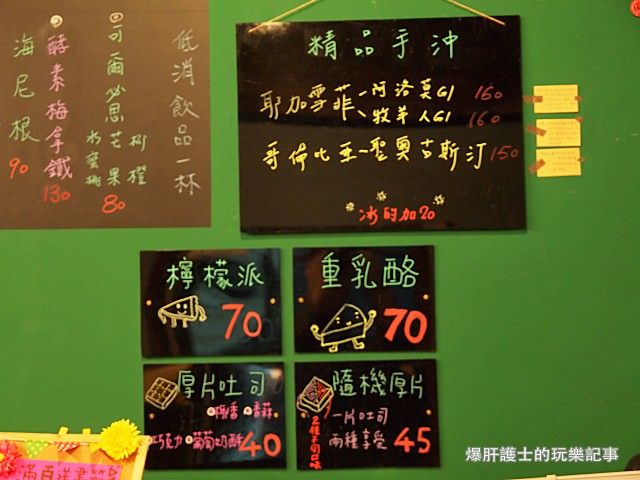 低消飲品一杯
可爾必思
水蜜桃 芒果 柳橙
80
酵素梅拿鐵
130
海尼根
90
精品手沖
耶加雪菲-阿洛莫G1 160
牧羊人G1 160
哥倫比亞-聖奧古斯汀 150
冰的加20
檸檬派
70
重乳酪
70
厚片吐司
椰香 香蒜
巧克力 葡萄奶酥 40
隨機厚片
一片吐司
兩種享受 45
爆肝護士的玩樂記事